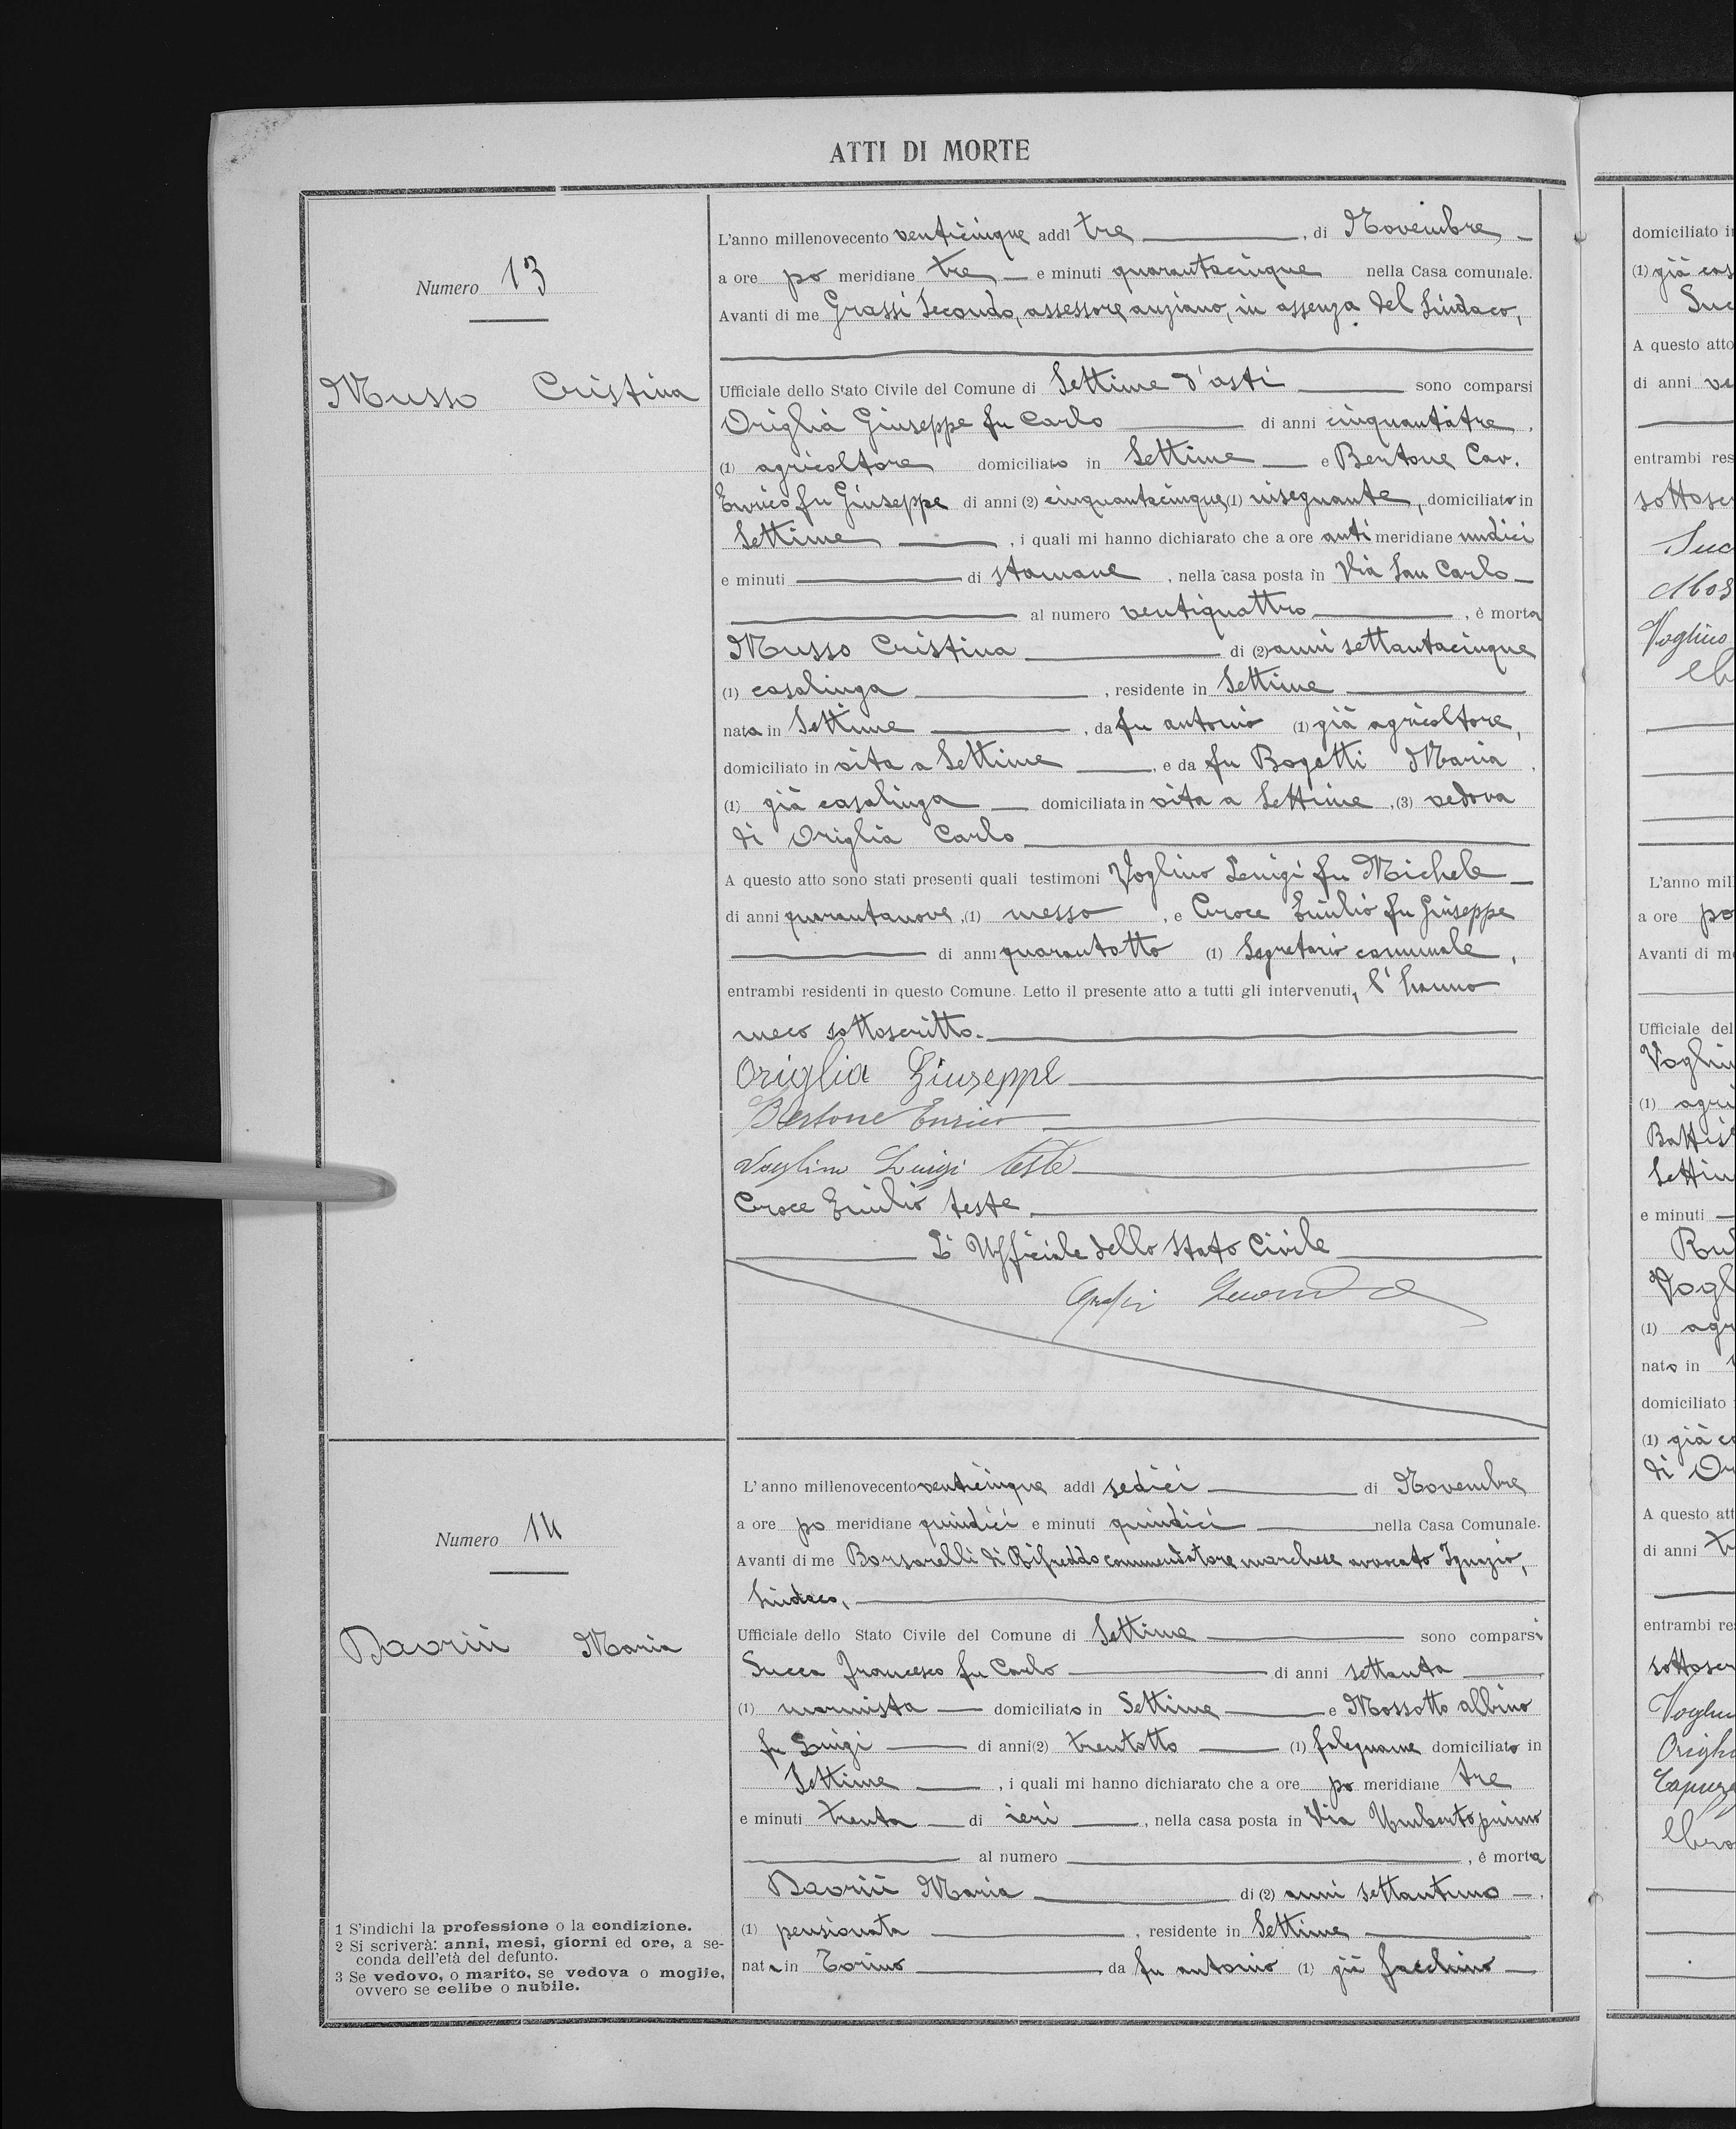 ATTI DI MORTE
Numero 13
Musso Cristina
L'anno millenovecento venticinque addì tre, di Novembre
a ore po meridiane tre e minuti quarantacinque nella Casa comunale.
Avanti di me Grassi Secondo, assessore anziano, in assenza del Sindaco,
Ufficiale dello Stato Civile del Comune di Settime d'Asti sono comparsi
Origlia Giuseppe fu Carlo di anni cinquantatre,
(1) agricoltore domiciliato in Settime e Bertone Cav.
Enrico fu Giuseppe di anni (2) cinquantacinque, (1) insegnante, domiciliato in
Settime, i quali mi hanno dichiarato che a ore anti meridiane undici
e minuti di stamane, nella casa posta in Via San Carlo
al numero ventiquattro, è morta
Musso Cristina di (2) anni settantacinque
(1) casalinga, residente in Settime
nata in Settime, da fu Antonio (1) già agricoltore,
domiciliato in vita a Settime, e da fu Bogetti Maria,
(1) già casalinga domiciliata in vita a Settime, (3) vedova
di Origlia Carlo
A questo atto sono stati presenti quali testimoni Voglino Luigi fu Michele
di anni quarantanove, (1) messo, e Croce Emilio fu Giuseppe
di anni quarantotto (1) Segretario comunale,
entrambi residenti in questo Comune. Letto il presente atto a tutti gli intervenuti, l'hanno
meco sottoscritto.
Origlia Giuseppe
Bertone Enrico
Voglino Luigi teste
Croce Emilio teste
L'Ufficiale dello Stato Civile
Grassi Secondo
Numero 14
Maria
L'anno millenovecento venticinque addì sedici di Novembre
a ore po meridiane quindici e minuti quindici nella Casa Comunale.
Avanti di me Borsarelli di Rifreddo commendatore marchese avvocato Ignazio,
Sindaco,
Ufficiale dello Stato Civile del Comune di Settime sono comparsi
Succa Francesco fu Carlo di anni settanta,
(1) marmista domiciliato in Settime e Mossotto Albino
fu Luigi di anni (2) trentotto (1) falegname domiciliato in
Settime, i quali mi hanno dichiarato che a ore po meridiane tre
e minuti trenta di ieri, nella casa posta in Via Umberto primo
al numero, è morta
Maria di (2) anni settantuno,
(1) pensionata, residente in Settime
nata in Torino da fu Antonio (1) già facchino
1 S'indichi la professione o la condizione.
2 Si scriverà: anni, mesi, giorni ed ore, a se-
conda dell'età del defunto.
3 Se vedovo, o marito, se vedova o moglie,
ovvero se celibe o nubile.
domiciliato i
(1) già cas
Suc
A questo atto
di anni ve
entrambi res
sottoscr
Suc
Mos
Voglino
L'anno mil
a ore po
Avanti di m
Ufficiale del
Voglin
(1) agri
Battis
Settim
e minuti
Vogl
(1) agr
nato in
domiciliato
(1) già c
di Or
A questo att
di anni tr
entrambi re
sottoscr
Voglin
Origli